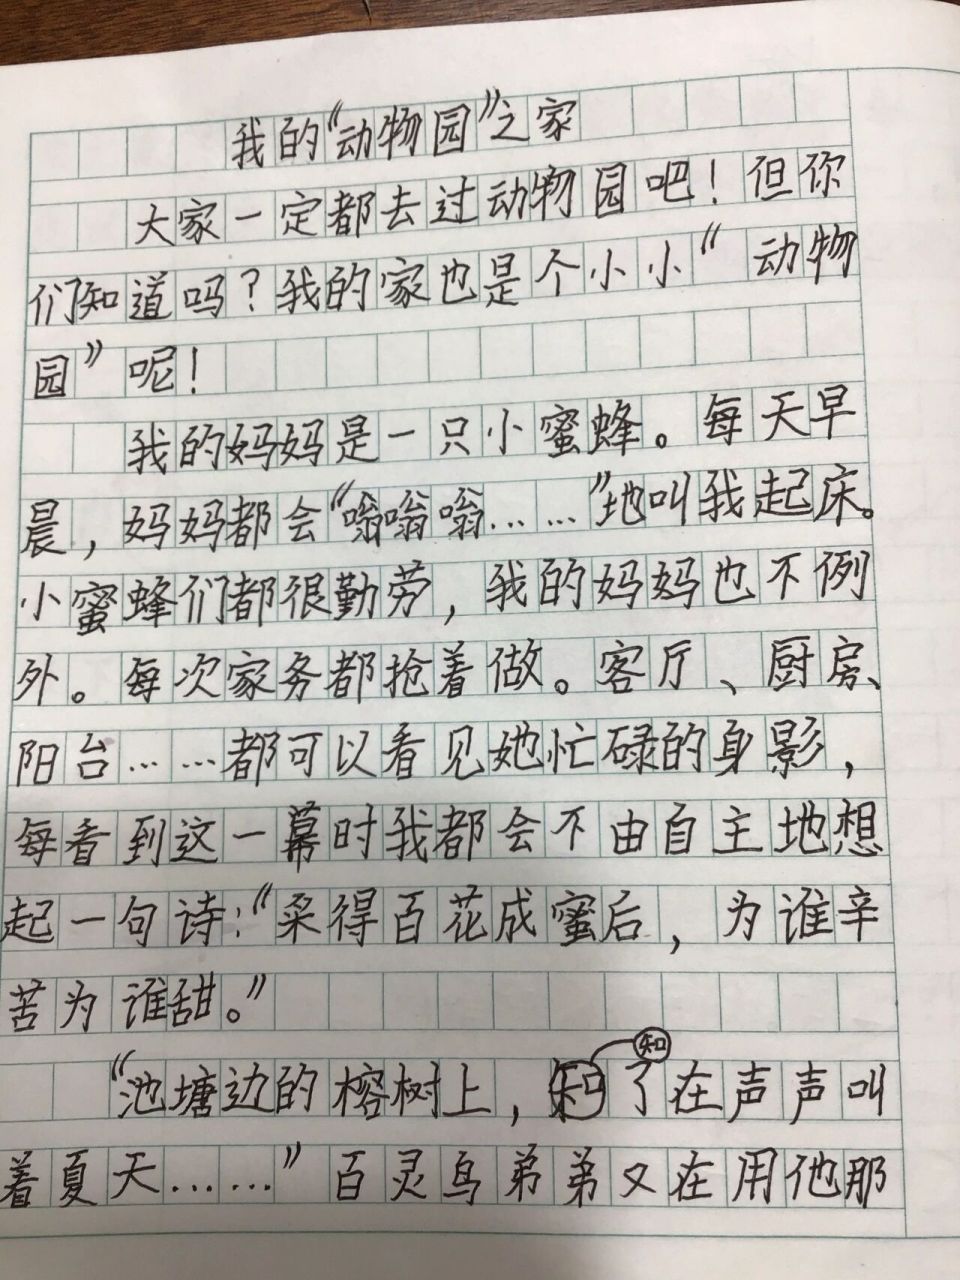 我的“动物园”之家
大家一定都去过动物园吧！但你
们知道吗？我的家也是个小小“动物
园”呢！
我的妈妈是一只小蜜蜂。每天早
晨，妈妈都会“嗡嗡嗡……”地叫我起床。
小蜜蜂们都很勤劳，我的妈妈也不例
外。每次家务都抢着做。客厅、厨房、
阳台……都可以看见她忙碌的身影，
每看到这一幕时我都会不由自主地想
起一句诗：“采得百花成蜜后，为谁辛
苦为谁甜。”
知
“池塘边的榕树上，知了在声声叫
着夏天……”百灵鸟弟弟又在用他那